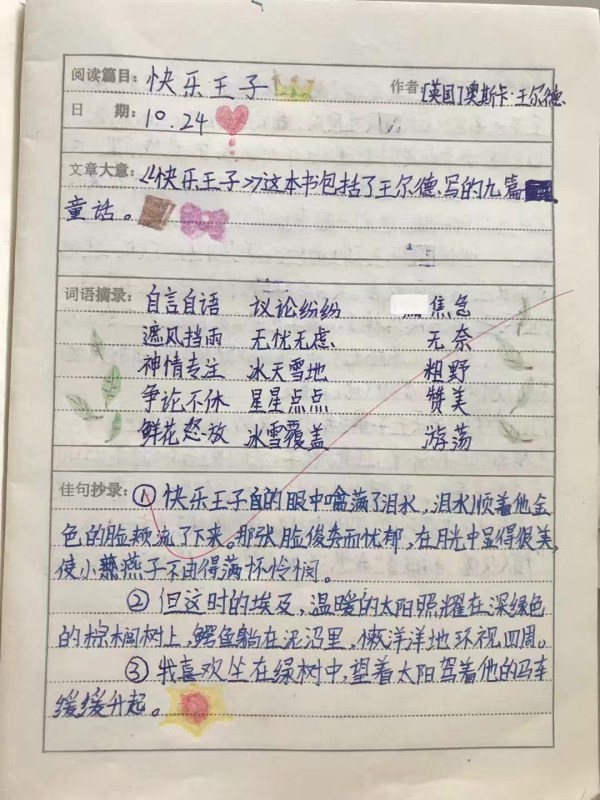 阅读篇目：快乐王子 作者：[英国]奥斯卡·王尔德
日 期：10.24
文章大意：《快乐王子》这本书包括了王尔德写的九篇
童话。
词语摘录：自言自语 议论纷纷 焦急
遮风挡雨 无忧无虑 无奈
神情专注 冰天雪地 粗野
争论不休 星星点点 赞美
鲜花怒放 冰雪覆盖 游荡
佳句抄录：① 快乐王子的眼中噙满了泪水，泪水顺着他金
色的脸颊流了下来。那张脸俊秀而忧郁，在月光中显得很美，
使小燕子不由得满怀怜悯。
② 但这时的埃及，温暖的太阳照耀在深绿色
的棕榈树上，鳄鱼躺在泥沼里，懒洋洋地环视四周。
③ 我喜欢坐在绿树中，望着太阳驾着他的马车
缓缓升起。